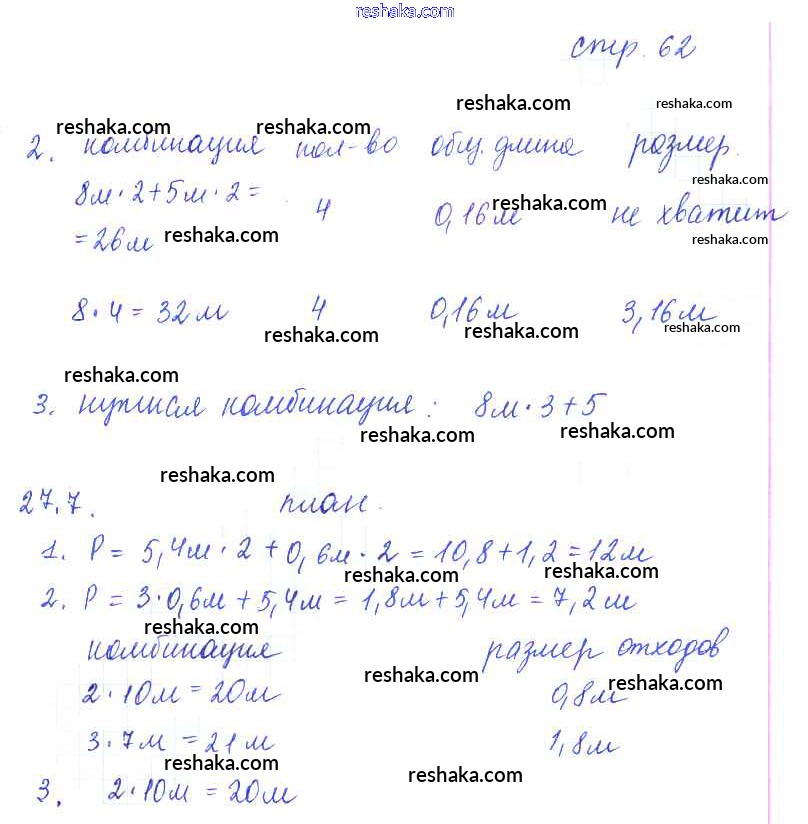 reshaka.com
стр. 62
reshaka.com reshaka.com reshaka.com reshaka.com
2. комбинация кол-во общ. длина размер.
8м·2+5м·2=
=26м 4 0,16м не хватит
reshaka.com reshaka.com reshaka.com reshaka.com
8·4=32м 4 0,16м 3,16м
reshaka.com reshaka.com reshaka.com
reshaka.com
3. нужная комбинация: 8м·3+5
reshaka.com reshaka.com
reshaka.com
27.7. план.
1. P = 5,4м·2+0,6м·2 = 10,8+1,2=12м
reshaka.com reshaka.com
2. P = 3·0,6м+5,4м=1,8м+5,4м=7,2м
reshaka.com
комбинация размер отходов
reshaka.com reshaka.com
2·10м=20м 0,8м
3·7м=21м 1,8м
reshaka.com reshaka.com
3. 2·10м=20м